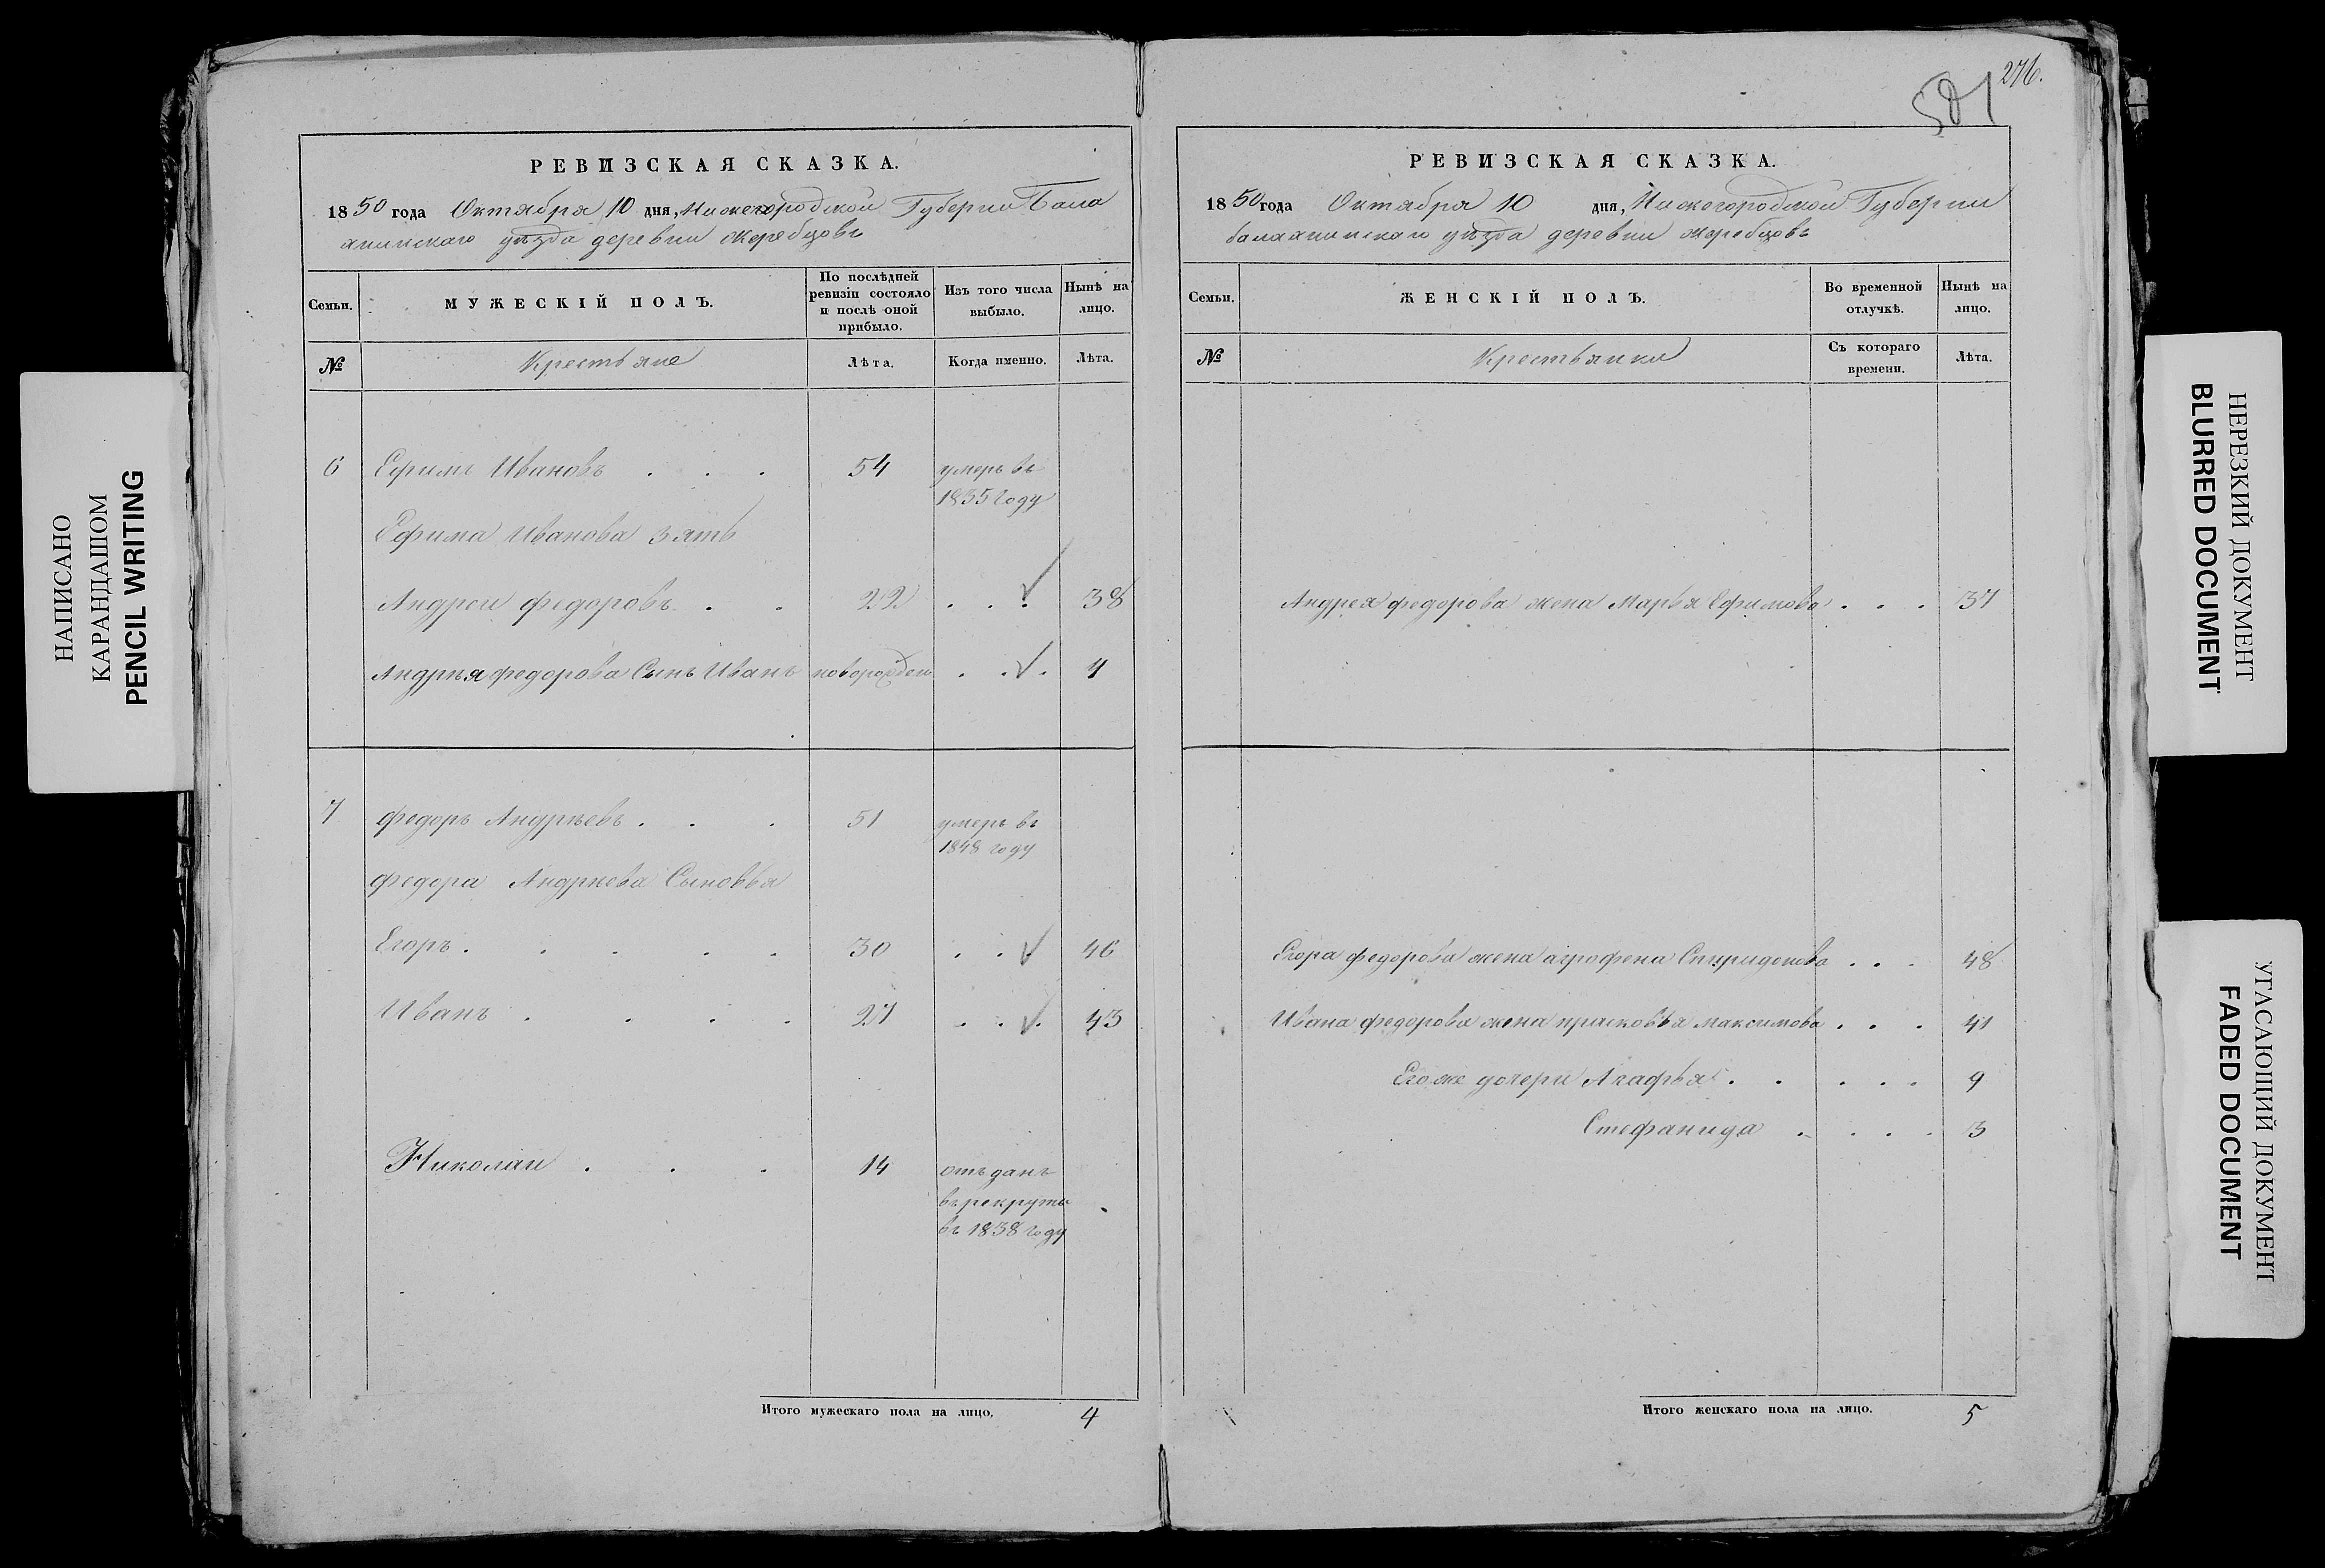 276.
581
РЕВИЗСКАЯ СКАЗКА.
1850 года Октября 10 дня, Нижегородской Губернии Бала
хнинскаго уѣзда деревни Жеребцовъ
Семьи.
МУЖЕСКІЙ ПОЛЪ.
По послѣдней ревизіи состояло и послѣ оной прибыло.
Изъ того числа выбыло.
Нынѣ на лицо.
№
Крестьяне
Лѣта.
Когда именно.
Лѣта.
6 Ефимъ Ивановъ . . . 54 умеръ въ
1835 году
Ефима Иванова зять
Андрей федоровъ . . 22 . . . 38
Андрѣя федорова Сынъ Иванъ новорожден . . . 4
7 федоръ Андрѣевъ . . . 51 умеръ въ
1848 году
федора Андрѣева Сыновья
Егоръ . . . . . 30 . . . 46
Иванъ . . . . 27 . . . 43
Николаи . . . 14 отъданъ
въ рекруты
въ 1838 году
Итого мужескаго пола на лицо. 4
РЕВИЗСКАЯ СКАЗКА.
1850 года Октября 10 дня, Нижогородской Губернии
балахнинскаго уѣзда деревни жеребцовъ
Семьи.
ЖЕНСКІЙ ПОЛЪ.
Во временной отлучкѣ.
Нынѣ на лицо.
№
Крестьянки
Съ котораго времени.
Лѣта.
Андрея федорова жена Марья Ефимова . . . 37
Егора федорова жена агрофена Спиридонова . . . 48
Ивана федорова жена прасковья максимова . . . 41
Егоже дочери Агафья . . . . . 9
Стефанида . . . . . 3
Итого женскаго пола на лицо. 5
НАПИСАНО
КАРАНДАШОМ
PENCIL WRITING
НЕРЕЗКИЙ ДОКУМЕНТ
BLURRED DOCUMENT
УГАСАЮЩИЙ ДОКУМЕНТ
FADED DOCUMENT